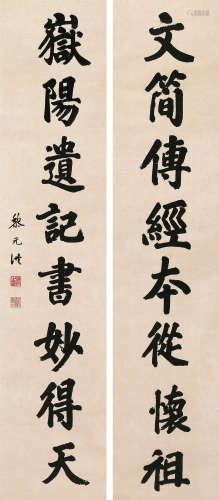 文簡傳經本從懷祖
嶽陽遺記書妙得天
黎元洪